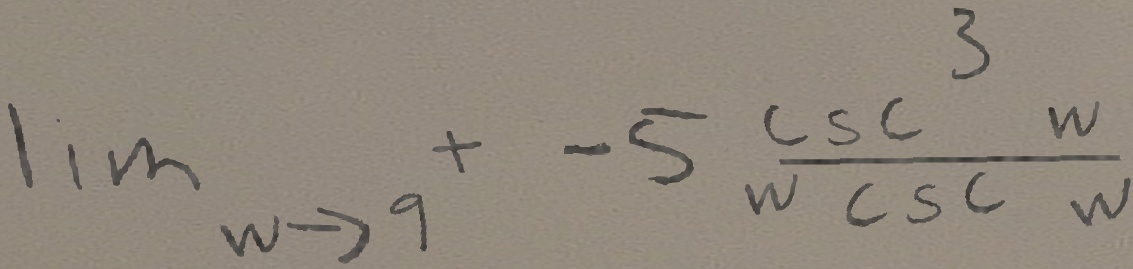 \lim_{w \to 9^+} -5 \frac{\csc^3 w}{w \csc w}